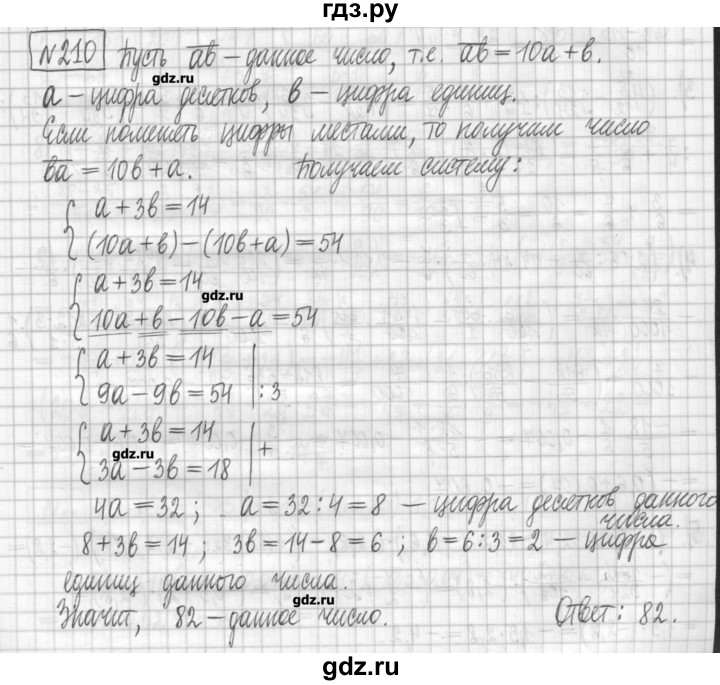 гдз.ру
№210 Пусть ab – данное число, т.е. ab = 10a + b.
gdz.ru
a – цифра десятков, b – цифра единиц.
Если поменять цифры местами, то получим число
ba = 10b + a. Получаем систему:
{ a + 3b = 14
(10a + b) – (10b + a) = 54
{ a + 3b = 14
gdz.ru
10a + b – 10b – a = 54
{ a + 3b = 14
9a – 9b = 54 | : 3
{ a + 3b = 14
gdz.ru
3a – 3b = 18 | +
4a = 32 ; a = 32 : 4 = 8 – цифра десятков данного
числа.
8 + 3b = 14 ; 3b = 14 – 8 = 6 ; b = 6 : 3 = 2 – цифра
единиц данного числа.
gdz.ru
Значит, 82 – данное число. Ответ: 82.
gdz.ru